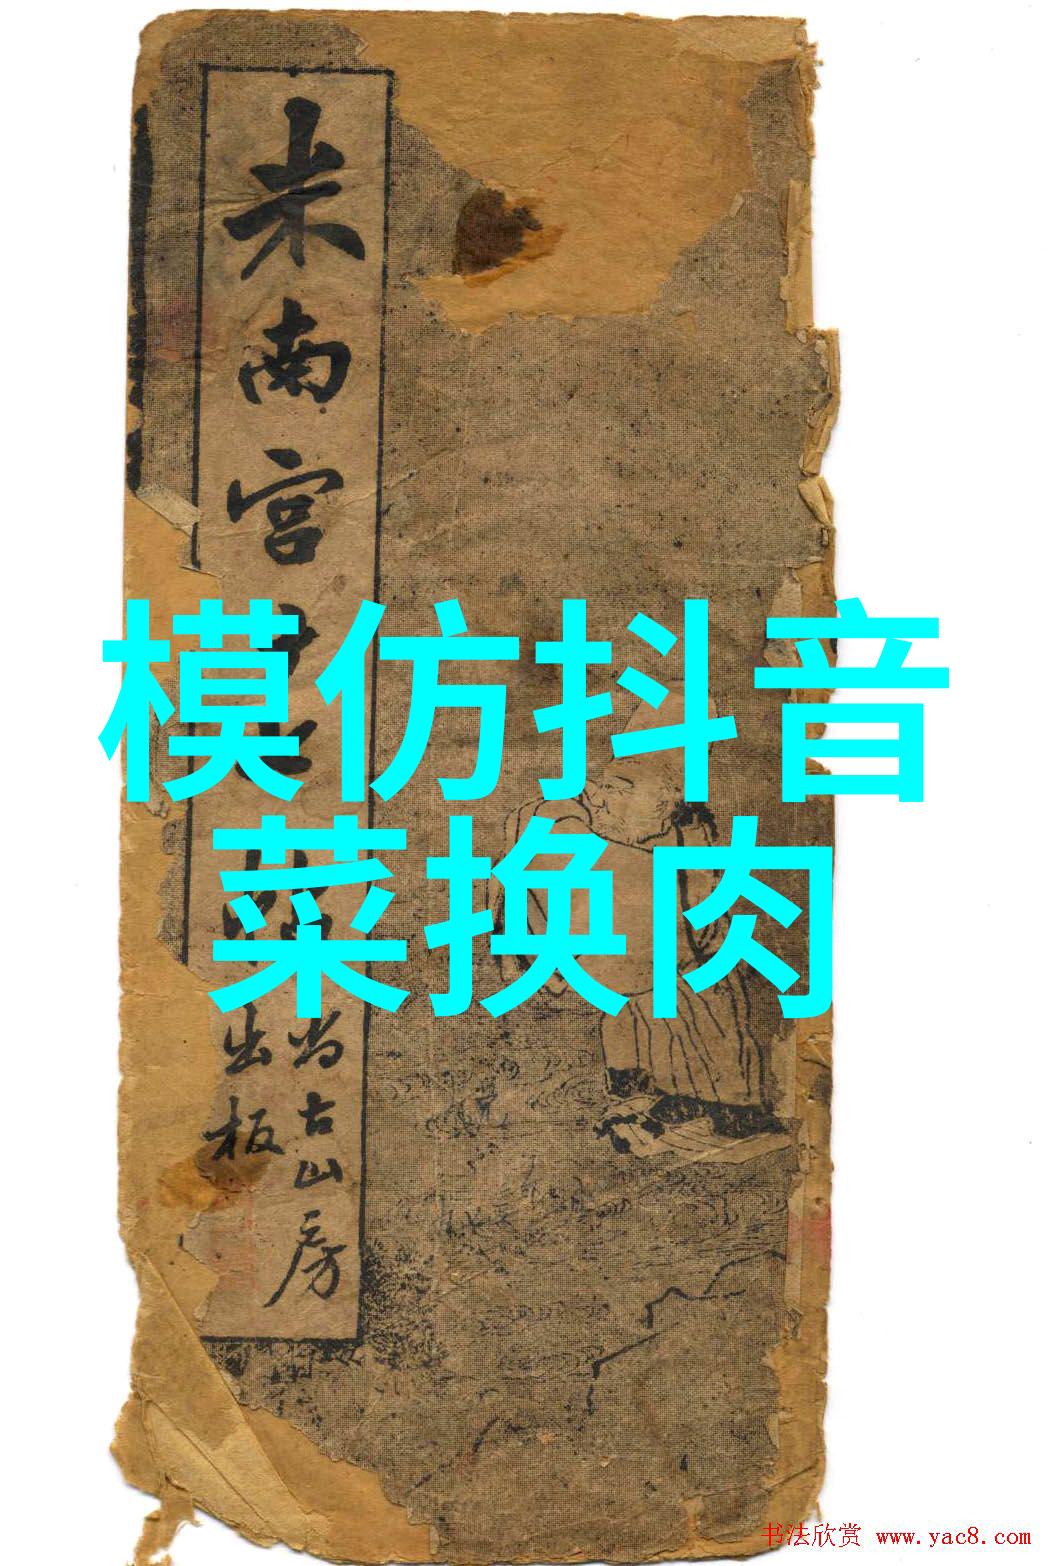 米南宫
尚古山房
出板
模仿抖音
菜换肉
书法欣赏 www.yac8.com